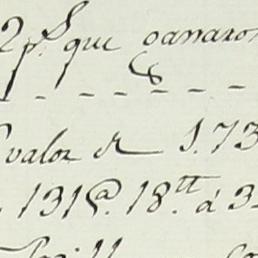 2 p.s que ganaron
valor de 1.73
131@. 18.tt á 3